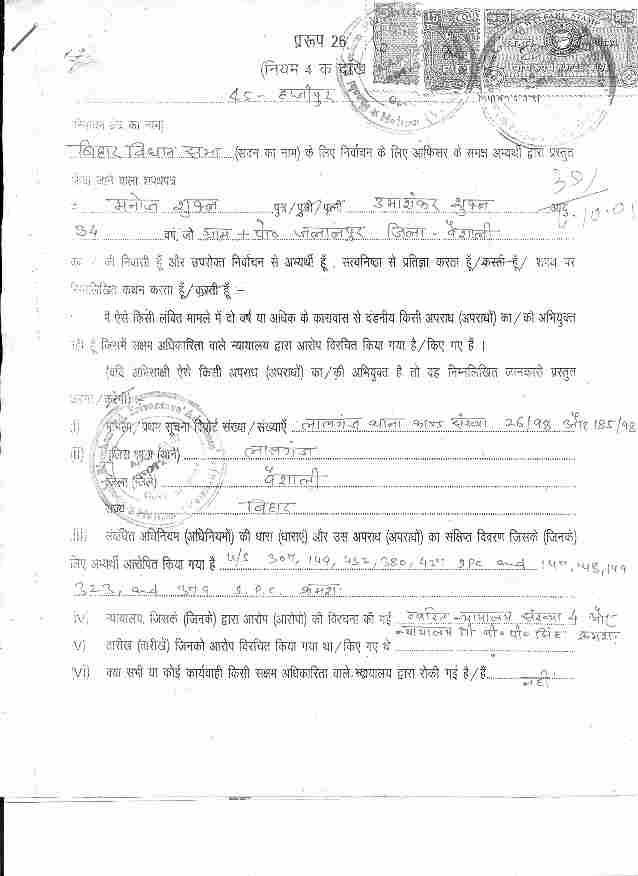 प्ररूप 26
(नियम 4 क
45- हाजीपुर
निर्वाचन क्षेत्र का नाम
बिहार विधान सभा (सदन का नाम) के लिए निर्वाचन के लिए आफिसर के समक्ष अभ्यर्थी द्वारा प्रस्तुत
किया जाने वाला शपथपत्र
मनोज शुक्ल पुत्र/पुत्री/पत्नी उमाशंकर शुक्ल आयु
34 वर्ष, जो ग्राम + पो० जलालपुर जिला - वैशाली
का / की निवासी हूँ और उपरोक्त निर्वाचन से अभ्यर्थी हूँ, सत्यनिष्ठा से प्रतिज्ञा करता हूँ/करती हूँ/ शपथ पर
निम्नलिखित कथन करता हूँ/करती हूँ :-
मैं ऐसे किसी लंबित मामले में दो वर्ष या अधिक के कारावास से दंडनीय किसी अपराध (अपराधों) का/की अभियुक्त
नहीं हूँ जिसमें सक्षम अधिकारिता वाले न्यायालय द्वारा आरोप विरचित किया गया है/किए गए हैं ।
(यदि अभिसाक्षी ऐसे किसी अपराध (अपराधों) का/की अभियुक्त है तो वह निम्नलिखित जानकारी प्रस्तुत
करेगा / करेगी) :-
(i) प्रथम सूचना रिपोर्ट संख्या/संख्याएँ लालगंज थाना काण्ड संख्या 26/98 और 185/98
(ii) पुलिस थाना (थाने) लालगंज
जिला (जिले) वैशाली
राज्य बिहार
(iii) संबंधित अधिनियम (अधिनियमों) की धारा (धाराएं) और उस अपराध (अपराधों) का संक्षिप्त विवरण जिसके (जिनके)
लिए अभ्यर्थी आरोपित किया गया है U/S 307, 149, 452, 380, 427 IPC and 147, 148, 149
323, and 379 I.P.C. क्रमशः
iv) न्यायालय, जिसके (जिनके) द्वारा आरोप (आरोपों) की विरचना की गई त्वरित न्यायालय संख्या 4 और
न्यायालय श्री सिंह क्रमशः
v) तारीख (तारीखें) जिनको आरोप विरचित किया गया था/किए गए थे
vi) क्या सभी या कोई कार्यवाही किसी सक्षम अधिकारिता वाले न्यायालय द्वारा रोकी गई है/हैं
नहीं